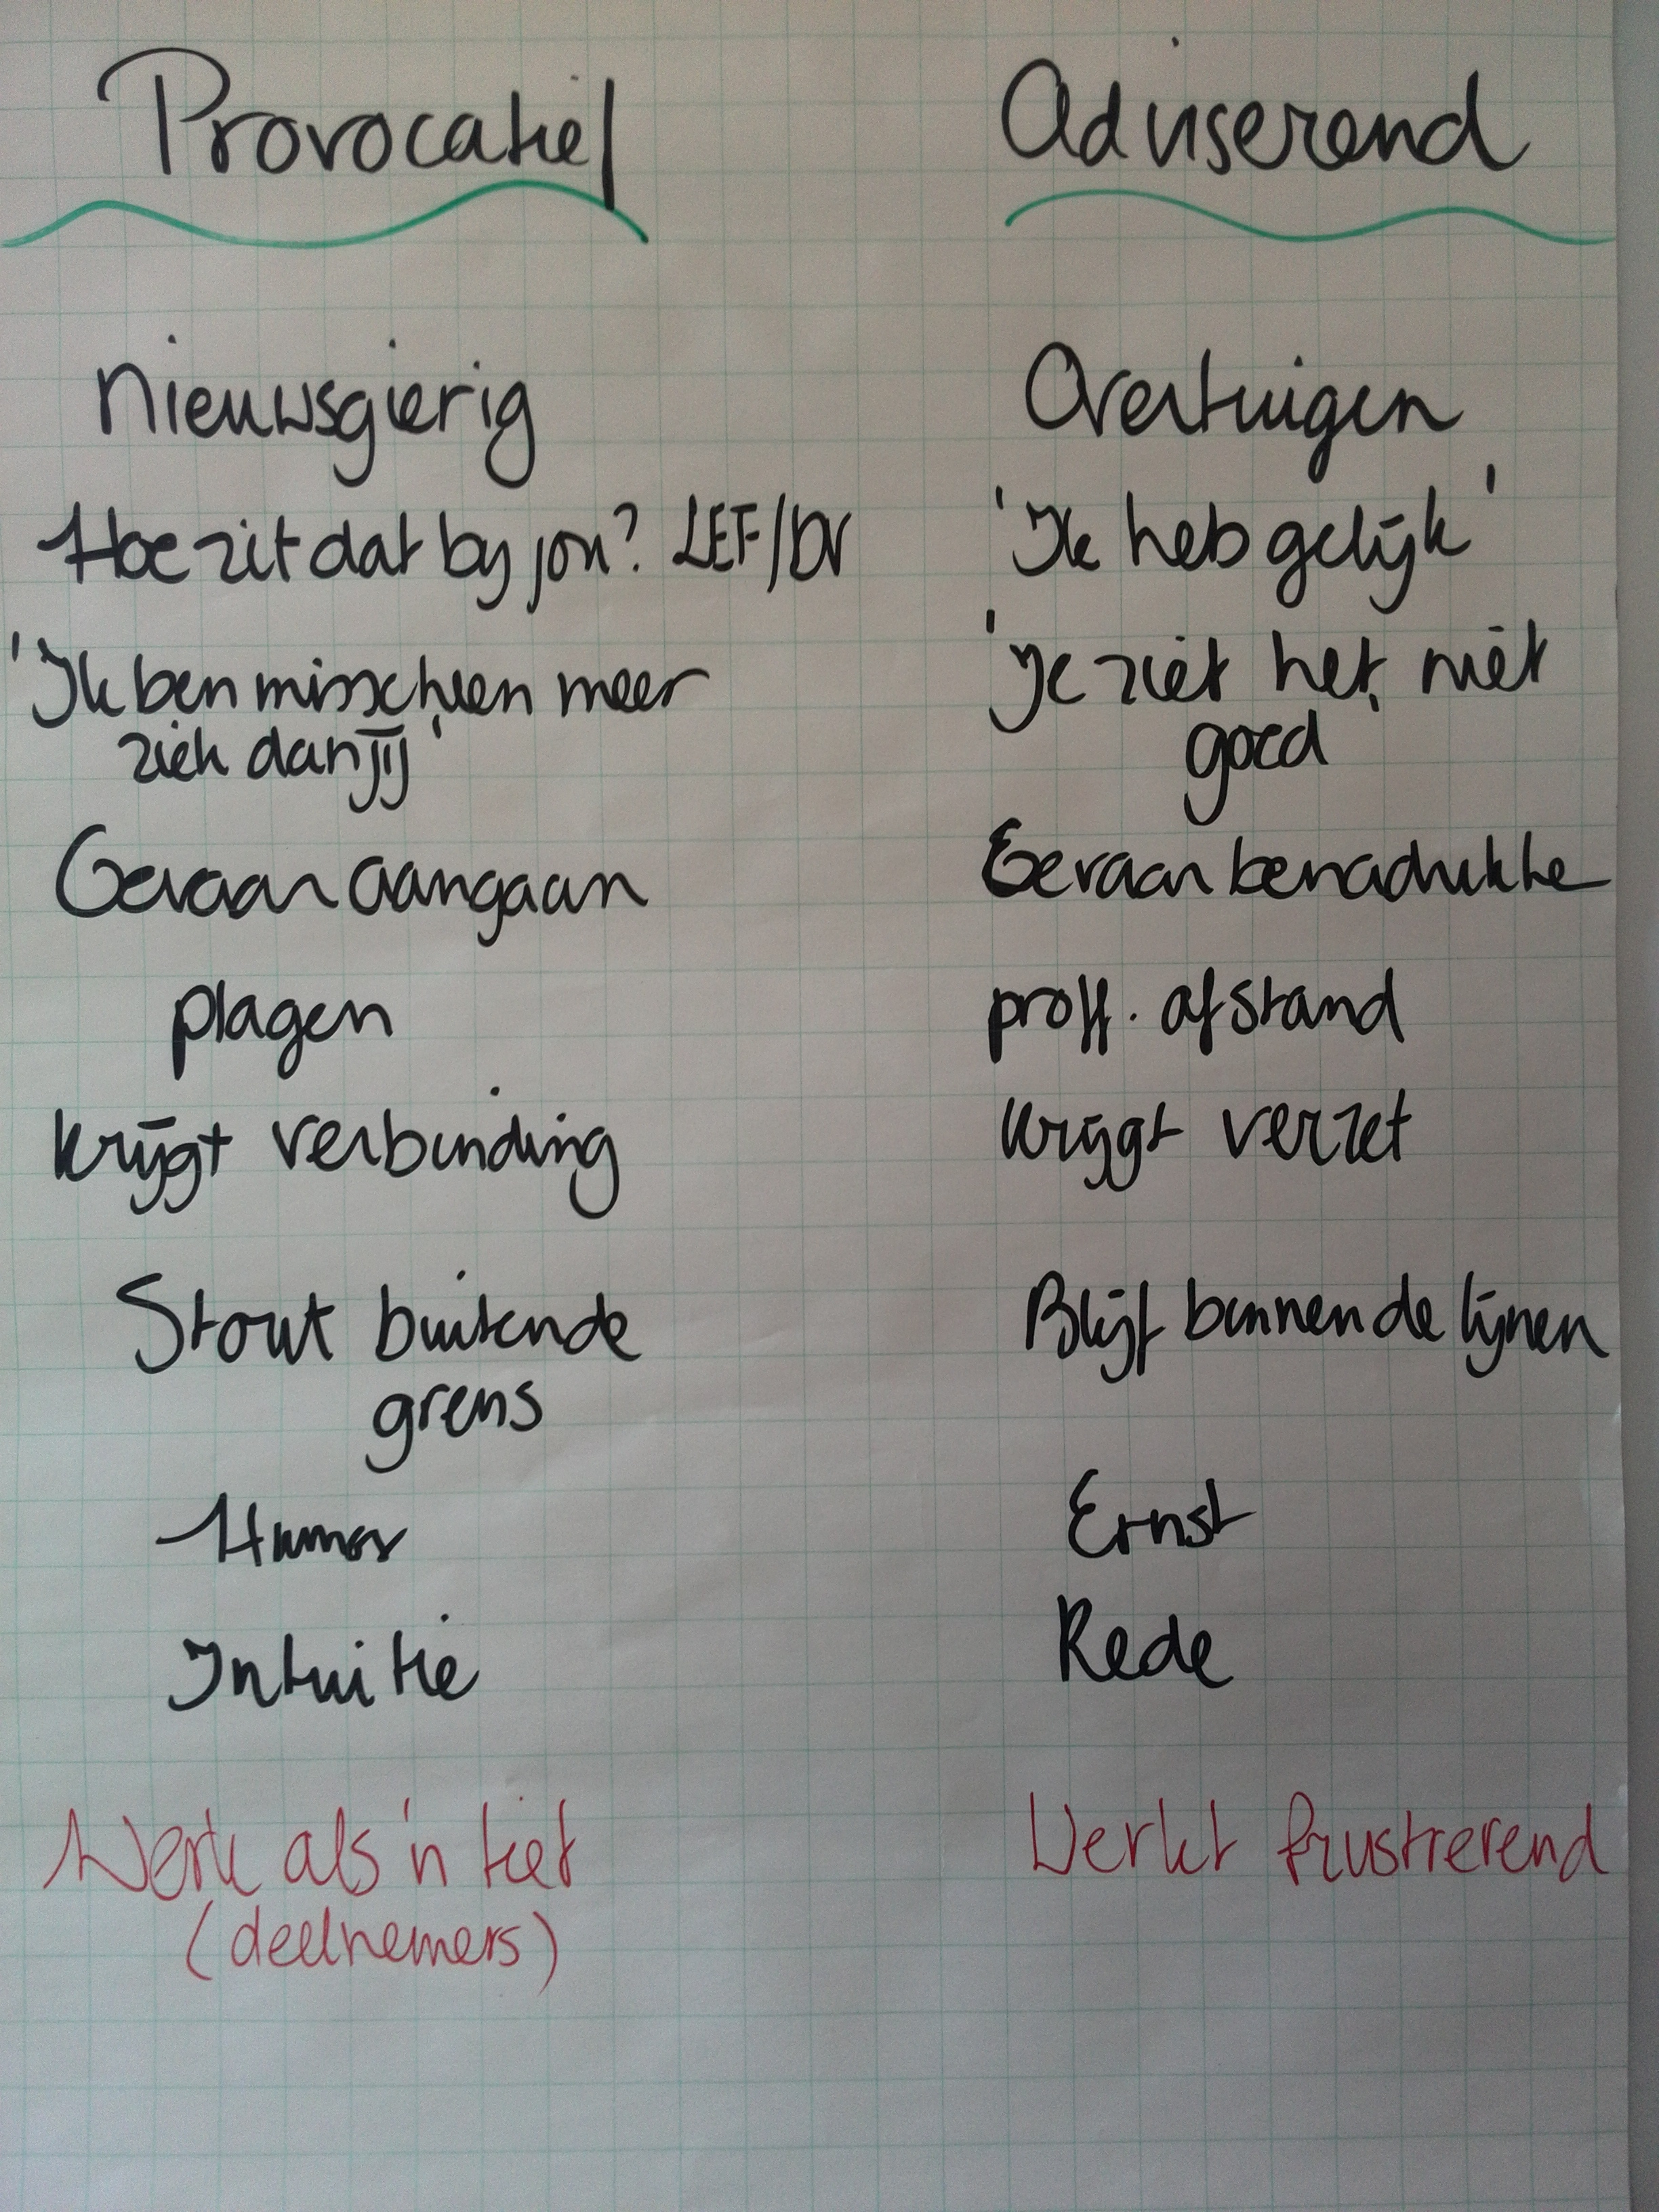 Provocatief
Adviserend
Nieuwsgierig
Overtuigen
Hoe zit dat bij jou? LEF/DV
'Ik heb gelijk'
'Ik ben misschien meer
ziek dan jij'
'Je ziet het niet
goed'
Gevaar aangaan
Gevaar benadrukke
plagen
proff. afstand
krijgt verbinding
krijgt verzet
Stout buiten de
grens
Blijft binnen de lijnen
Humor
Ernst
Intuitie
Rede
Werk als 'n
(deelnemers)
Werkt frustrerend